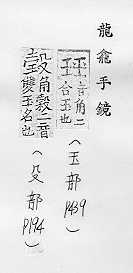 龍龕手鏡
玨音角二
合玉也
(玉部 P439)
角縠二音
雙玉名也
(殳部 P194)